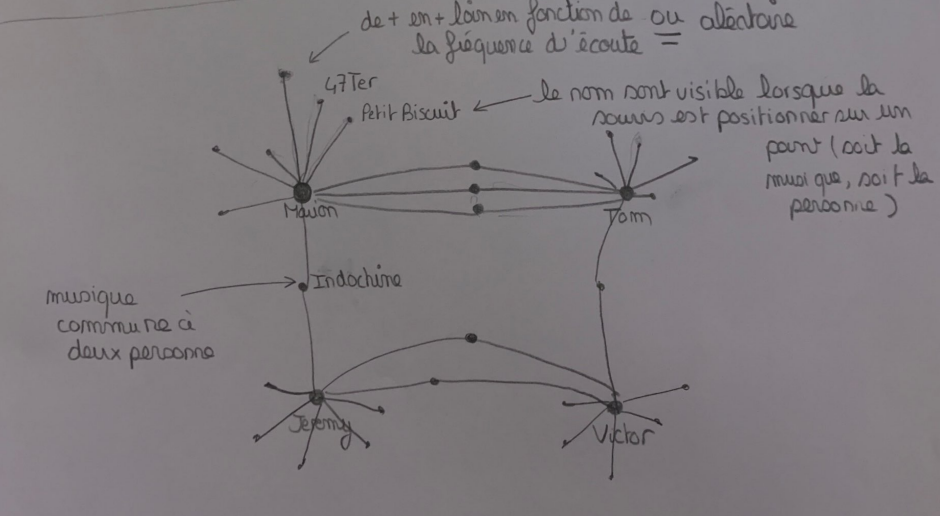 de + en + loin en fonction de ou aléatoire
la fréquence d'écoute =
47Ter
Petit Biscuit
le nom sont visible lorsque la
souris est positionner sur un
point (soit la
musique, soit la
personne)
Marion
Tom
Indochine
musique
commune à
deux personne
Jeremy
Victor